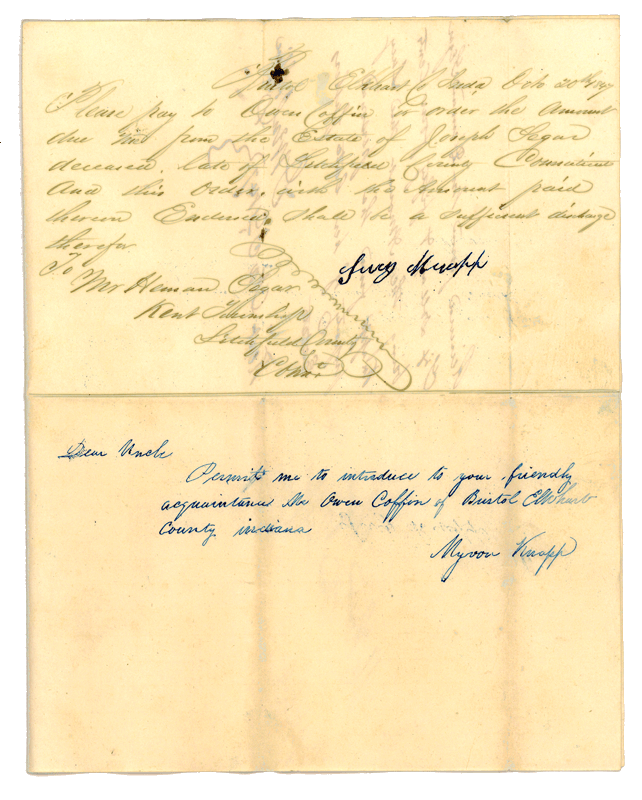 Bristol Elkhart Co Inda Octo 20th 1847
Please pay to Owen Coffin or order the Amount
due me from the Estate of Joseph Segar
deceased. late of Litchfield County Connecticut
And this Order, with the Amount paid
thereon Endorsed, shall be a sufficient discharge
therefor
Knapp
To Mr Heman Segar
Kent Township
Litchfield County
Dear Uncle
Permit me to introduce to your friendly
acquaintance Mr Owen Coffin of Bristol Elkhart
County indiana
Myron Knapp